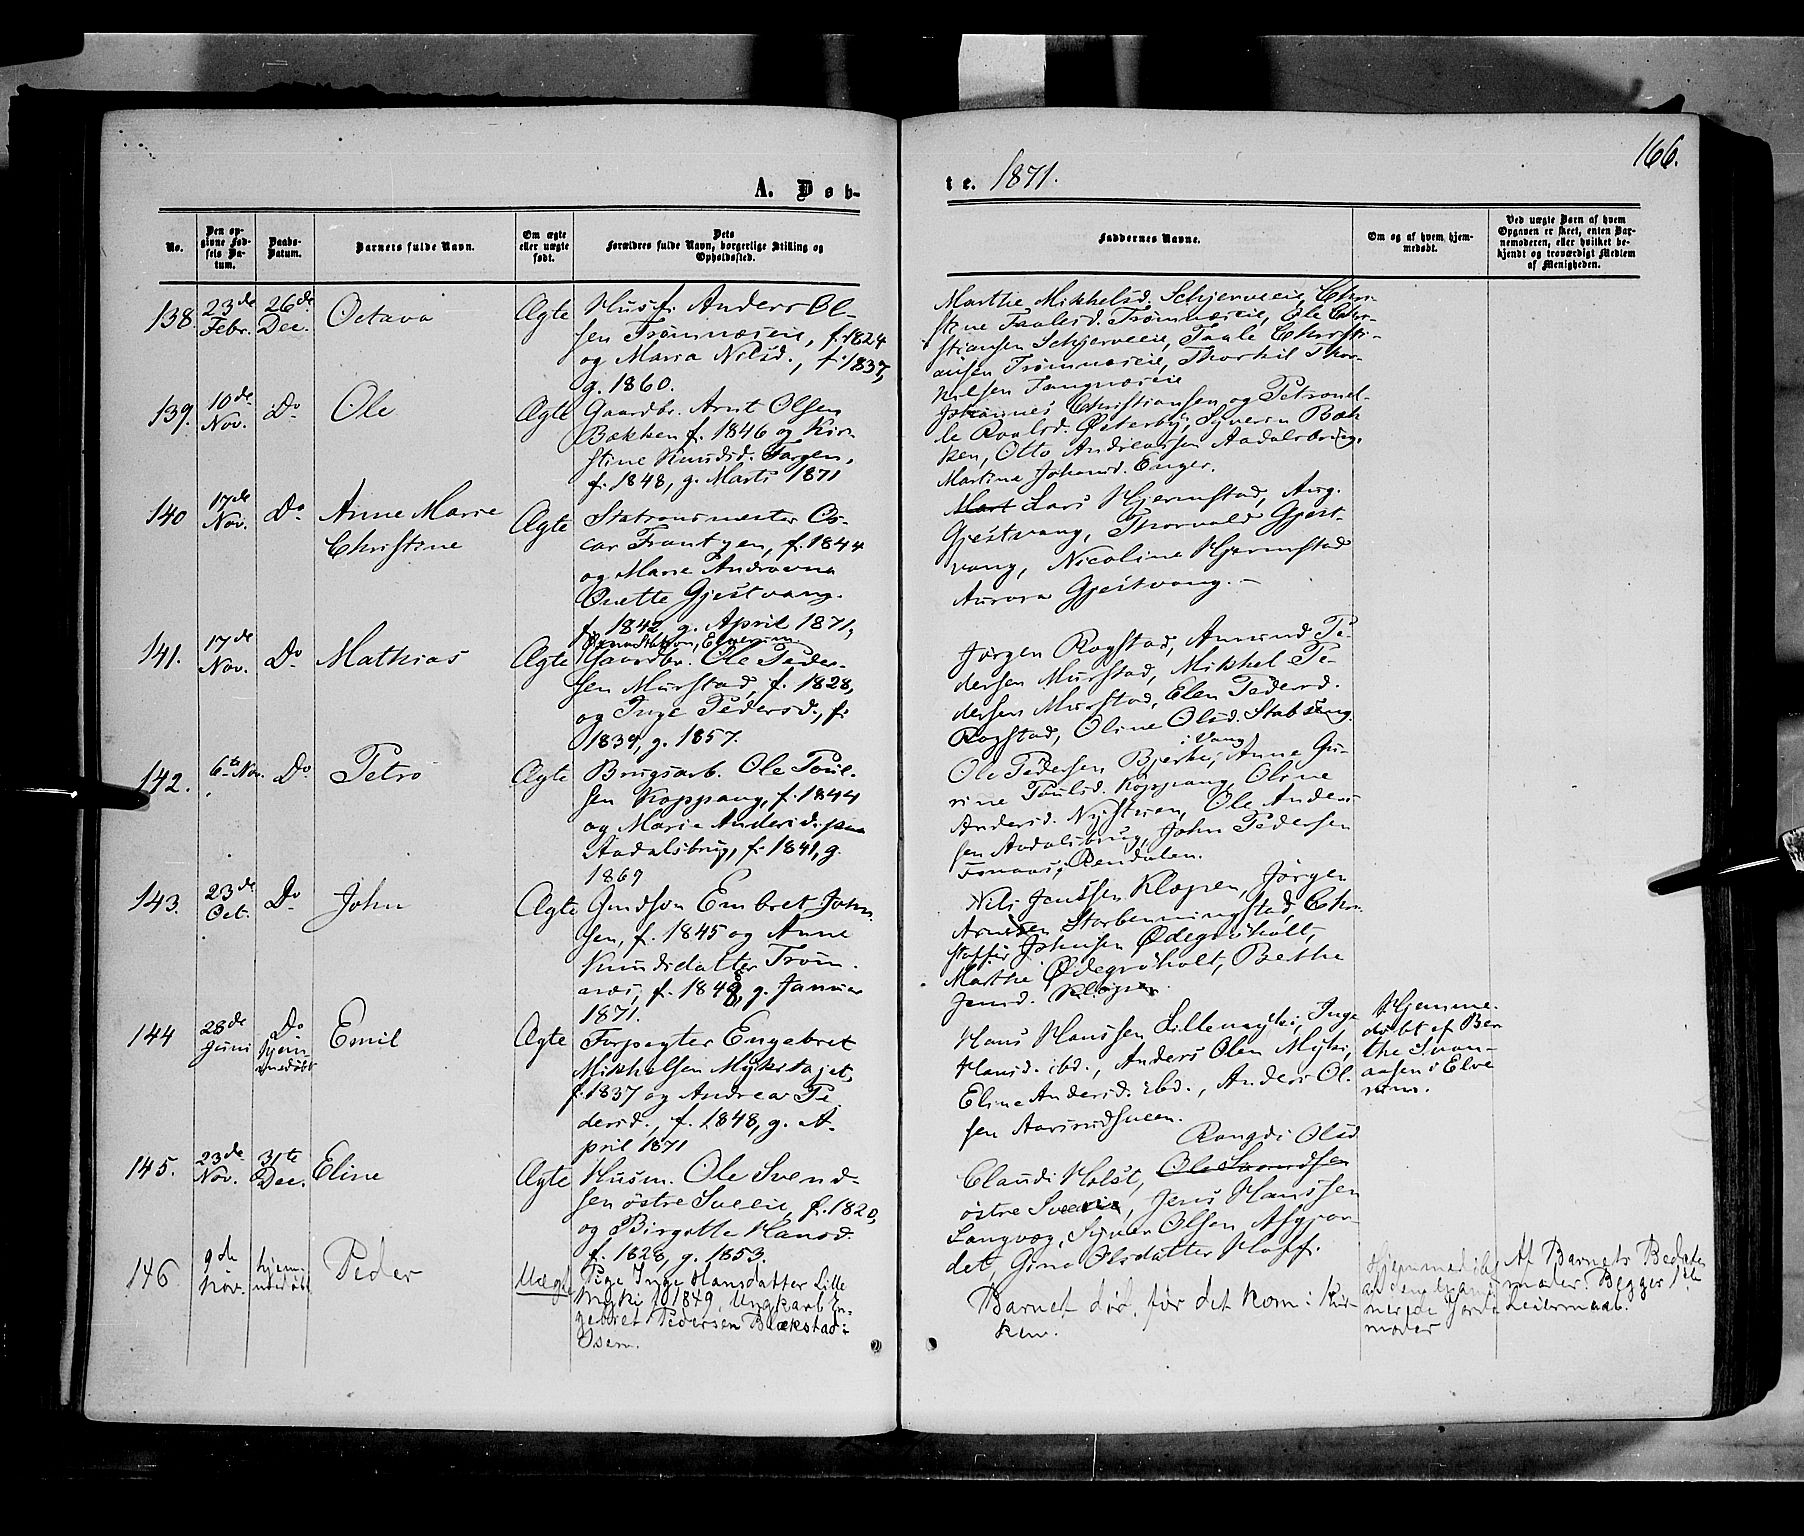 166.
A. Døb-
te. 1871.
No.
Den opgivne Fødsels Datum.
Daabs-Datum.
Barnets fulde Navn.
Om ægte eller uægte født.
Dets Forældres fulde Navn, borgerlige Stilling og Opholdssted.
Faddernes Navne.
Om og af hvem hjemmedøbt.
Ved uægte Børn af hvem Opgaven er skeet, enten Barnemoderen, eller hvilket bekjendt og troværdigt Medlem af Menigheden.
138. 23de Febr. 26de Dec. Octava Ægte
Husf. Anders Ol-
sen Trømnæseie, f. 1824
og Maria Nilsd., f. 1837,
g. 1860.
Marthe Mikkelsd. Schjerveeie, Chri-
stine Paalsd. Trømnæseie, Ole Chri-
stiansen Schjerveeie, Paale Christi-
ansen Trømnæseie, Thorkil Thor-
kilsen Tangnæseie
139. 10de Nov. Do Ole Ægte
Gaardbr. Arnt Olsen
Bækken f. 1846 og Kir-
stine Knudsd. Torgen,
f. 1848, g. Marts 1871
Johannes Christiansen og Petronel-
le Roalsd. Østerby, Syverin Bæk-
ken, Otto Andreassen Aadalsbrug,
Martina Johansd. Enger.
140 17de Nov. Do Anne Marie
Christine Ægte
Stationsmester Os-
car Frantzen, f. 1844
og Marie Androvna
Onette Gjestvang.
f. 1842 g. April 1871,
Elverum.
Lars Hjermstad, Aug.
Gjestvang, Thorvald Gjest-
vang, Nicoline Hjermstad
Aurora Gjestvang. -
141. 17de Nov. Do Mathias Ægte
Gaardbr. Ole Peder-
sen Murstad, f. 1828,
og Inge Pedersd., f.
1839, g. 1857.
Jørgen Rogstad, Amund Pe-
dersen Murstad, Mikkel Pe-
dersen Murstad, Elen Pedersd.
Rogstad, Oline Olsd. Stabæng.
142. 6te Nov. Do Petro Ægte
Brugsarb. Ole Poul-
sen Koppang, f. 1844
og Marie Andersd. paa
Aadalsbrug, f. 1841, g.
1869
Ole Pedersen Bjerke i Vang, Anne Gu-
rine Poulsd. Koppang, Oline
Andersd. Nystuen, Ole Ander-
sen Aadalsbrug, John Pedersen
i Rendalen.
143. 23de Oct. Do John Ægte
Gmdsøn Embret John-
sen, f. 1845 og Anne
Knudsdatter Trøm-
næs, f. 1848, g. Januar
1871.
Nils Jensen Kløpen, Jørgen
Arnesen Storbenningstad, Chri-
stoffer Johnsen Ødegårsholt,
Marthe Ødegårsholt, Berthe
Jensd. Kløpen.
144 28de Juni Do hjem-
medøbt Emil Ægte
Forpagter Engebret
Mikkelsen Mykstajet,
f. 1837 og Andrea Pe-
dersd., f. 1848, g. A-
pril 1871
Hans Hanssen Lillemyki, Inge
Hansd. ibd., Anders Olsen Myki,
Eline Andersd. ibd., Anders Ol-
sen
Hjemme-
døbt af Ber
the Svan-
aasen i Elve
rum.
145. 23de Nov. 31te Dec. Eline Ægte
Husm. Ole Svend-
sen østre Sveeie, f. 1820,
og Birgitte Hansd.
f. 1828, g. 1853.
Rangdi Olsd
Claudi Holst, Ole Svendsen
østre Sveeie, Jens Hanssen
Langvæg, Syver Olsen Afgjor-
det, Gina Olsdatter Hoff.
146 9de Nov. hjem-
medøbt Peder Uægte
Pige Inge Hansdatter Lille
myki f. 1849, Ungkarl En-
gebret Pedersen Blækstad i
Osen.
Barnet død, før det kom i Kir-
ken.
Hjemmedøbt
moder
Af Barnets Bedste
moder. Begges 1ste
Leiermaal.